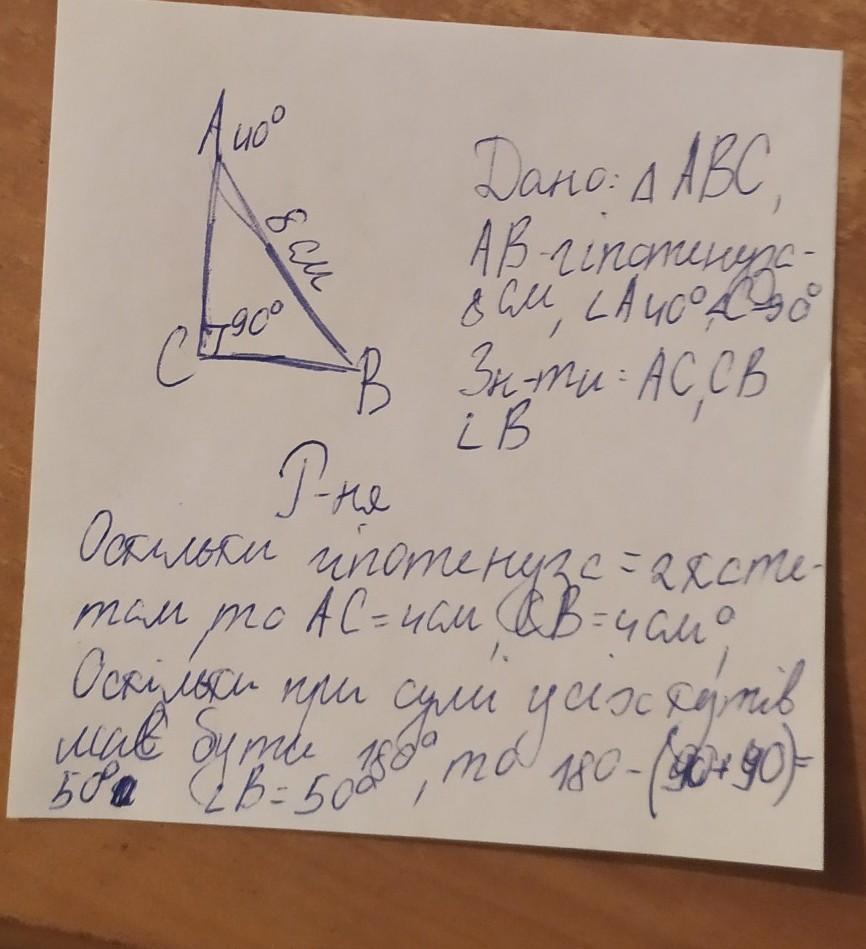 A 40°
8 см
90°
C
B
Дано: Δ ABC,
AB-гіпотенуза-
8 см, ∠A 40°, ∠C=90°
Зн-ти: AC, CB
∠B
Р-ня
Оскільки гіпотенуза = 2 кате-
там, то AC=4см, CB=4см°,
Оскільки при сумі усіх кутів
має бути 180°, то 180-(90+40)=
50° ∠B=50°